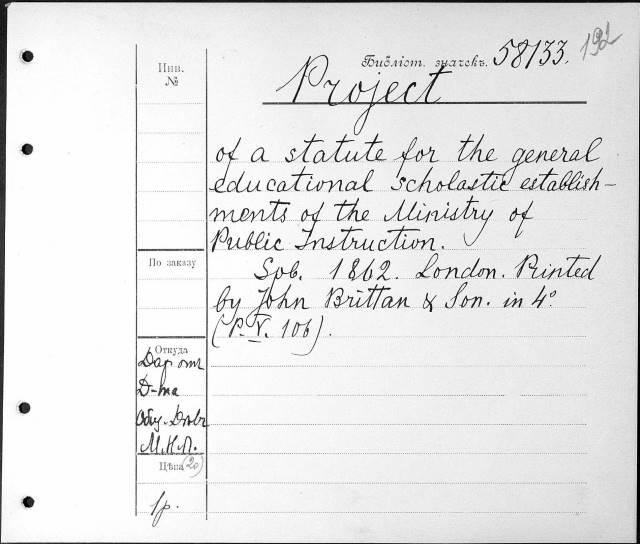 Библіот. значекъ. 58133.
192
Инв.
№
Project
of a statute for the general
educational scholastic establish-
ments of the Ministry of
Public Instruction.
По заказу
Spb. 1862. London. Printed
by John Brittan & Son. in 4º
(P. V. 106).
Откуда
Дар от
Д-та
М.Н.П.
Цѣна (20)
1р.